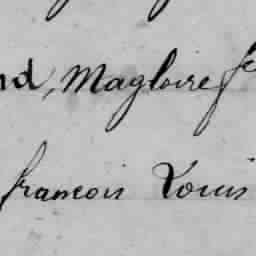 nd, Magloire fe
francois Louis